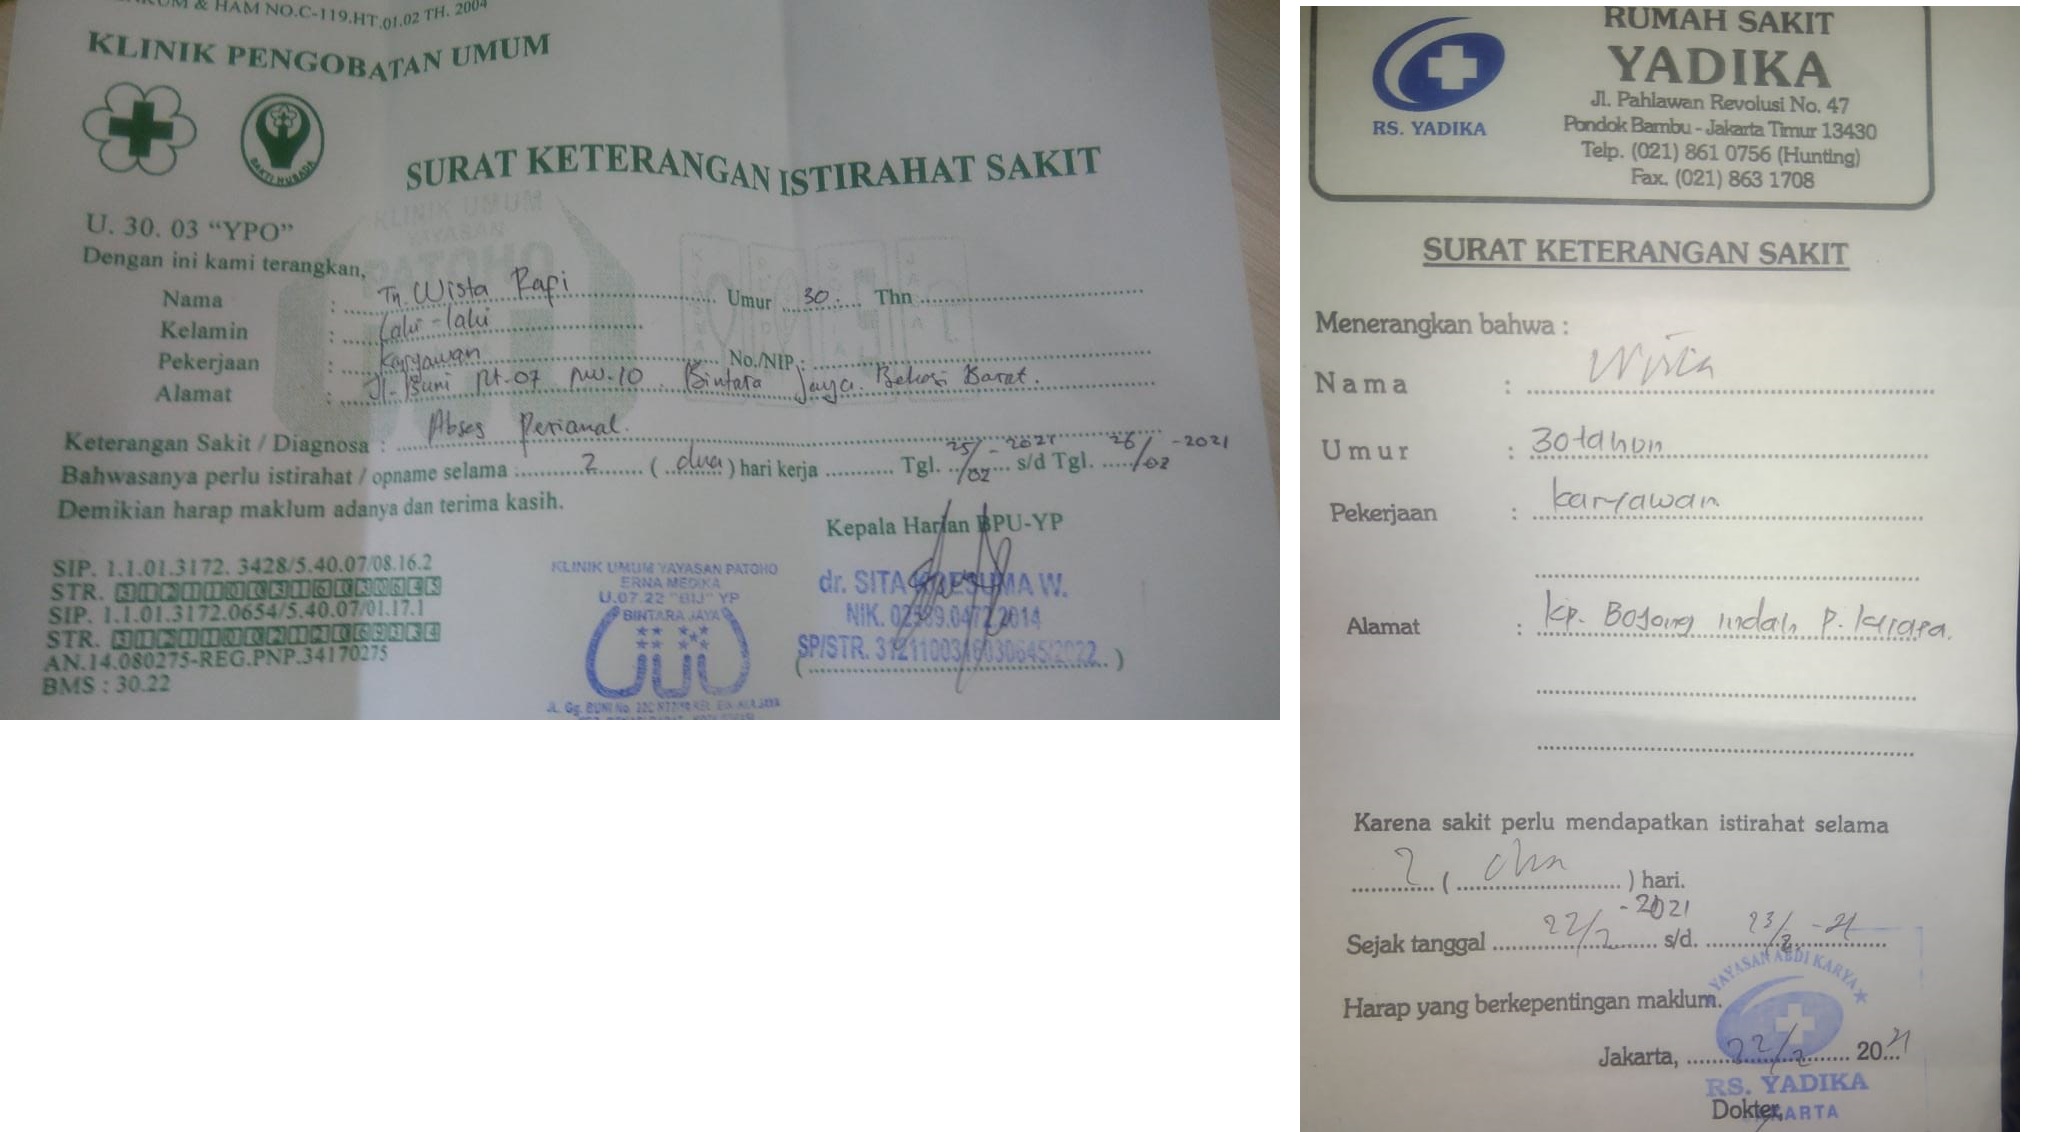 & HAM NO.C-119.HT.01.02 TH. 2004
KLINIK PENGOBATAN UMUM
BAKTI HUSADA
SURAT KETERANGAN ISTIRAHAT SAKIT
U. 30. 03 “YPO”
Dengan ini kami terangkan,
Nama : Tn. Wista Rafi Umur 30 Thn
Kelamin : Laki-laki
Pekerjaan : Karyawan No./NIP :
Alamat : Jl. Buni Rt.07 Rw.10 Bintara Jaya. Bekasi Barat.
Keterangan Sakit / Diagnosa : Abses Perianal.
Bahwasanya perlu istirahat / opname selama : 2 ( dua ) hari kerja Tgl. 25/02 - 2021 s/d Tgl. 26/02 - 2021
Demikian harap maklum adanya dan terima kasih.
Kepala Harian BPU-YP
SIP. 1.1.01.3172. 3428/5.40.07/08.16.2
STR.
SIP. 1.1.01.3172.0654/5.40.07/01.17.1
STR.
AN.14.080275-REG.PNP.34170275
BMS : 30.22
KLINIK UMUM YAYASAN PATOHO
ERNA MEDIKA
U.07.22 "BIJ" YP
BINTARA JAYA
JL. Gg. BUNI No.
dr. SITA W.
NIK. 02589.0472.2014
SP/STR.
RUMAH SAKIT
YADIKA
RS. YADIKA
Jl. Pahlawan Revolusi No. 47
Pondok Bambu - Jakarta Timur 13430
Telp. (021) 861 0756 (Hunting)
Fax. (021) 863 1708
SURAT KETERANGAN SAKIT
Menerangkan bahwa :
Nama : Wista
Umur : 30 tahun
Pekerjaan : karyawan
Alamat : kp. Bojong indah P.
Karena sakit perlu mendapatkan istirahat selama
2 ( dua ) hari.
Sejak tanggal 22/2 - 2021 s/d. 23/2 - 21
Harap yang berkepentingan maklum.
YAYASAN ABDI KARYA
Jakarta, 22/2 2021
RS. YADIKA
JAKARTA
Dokter,